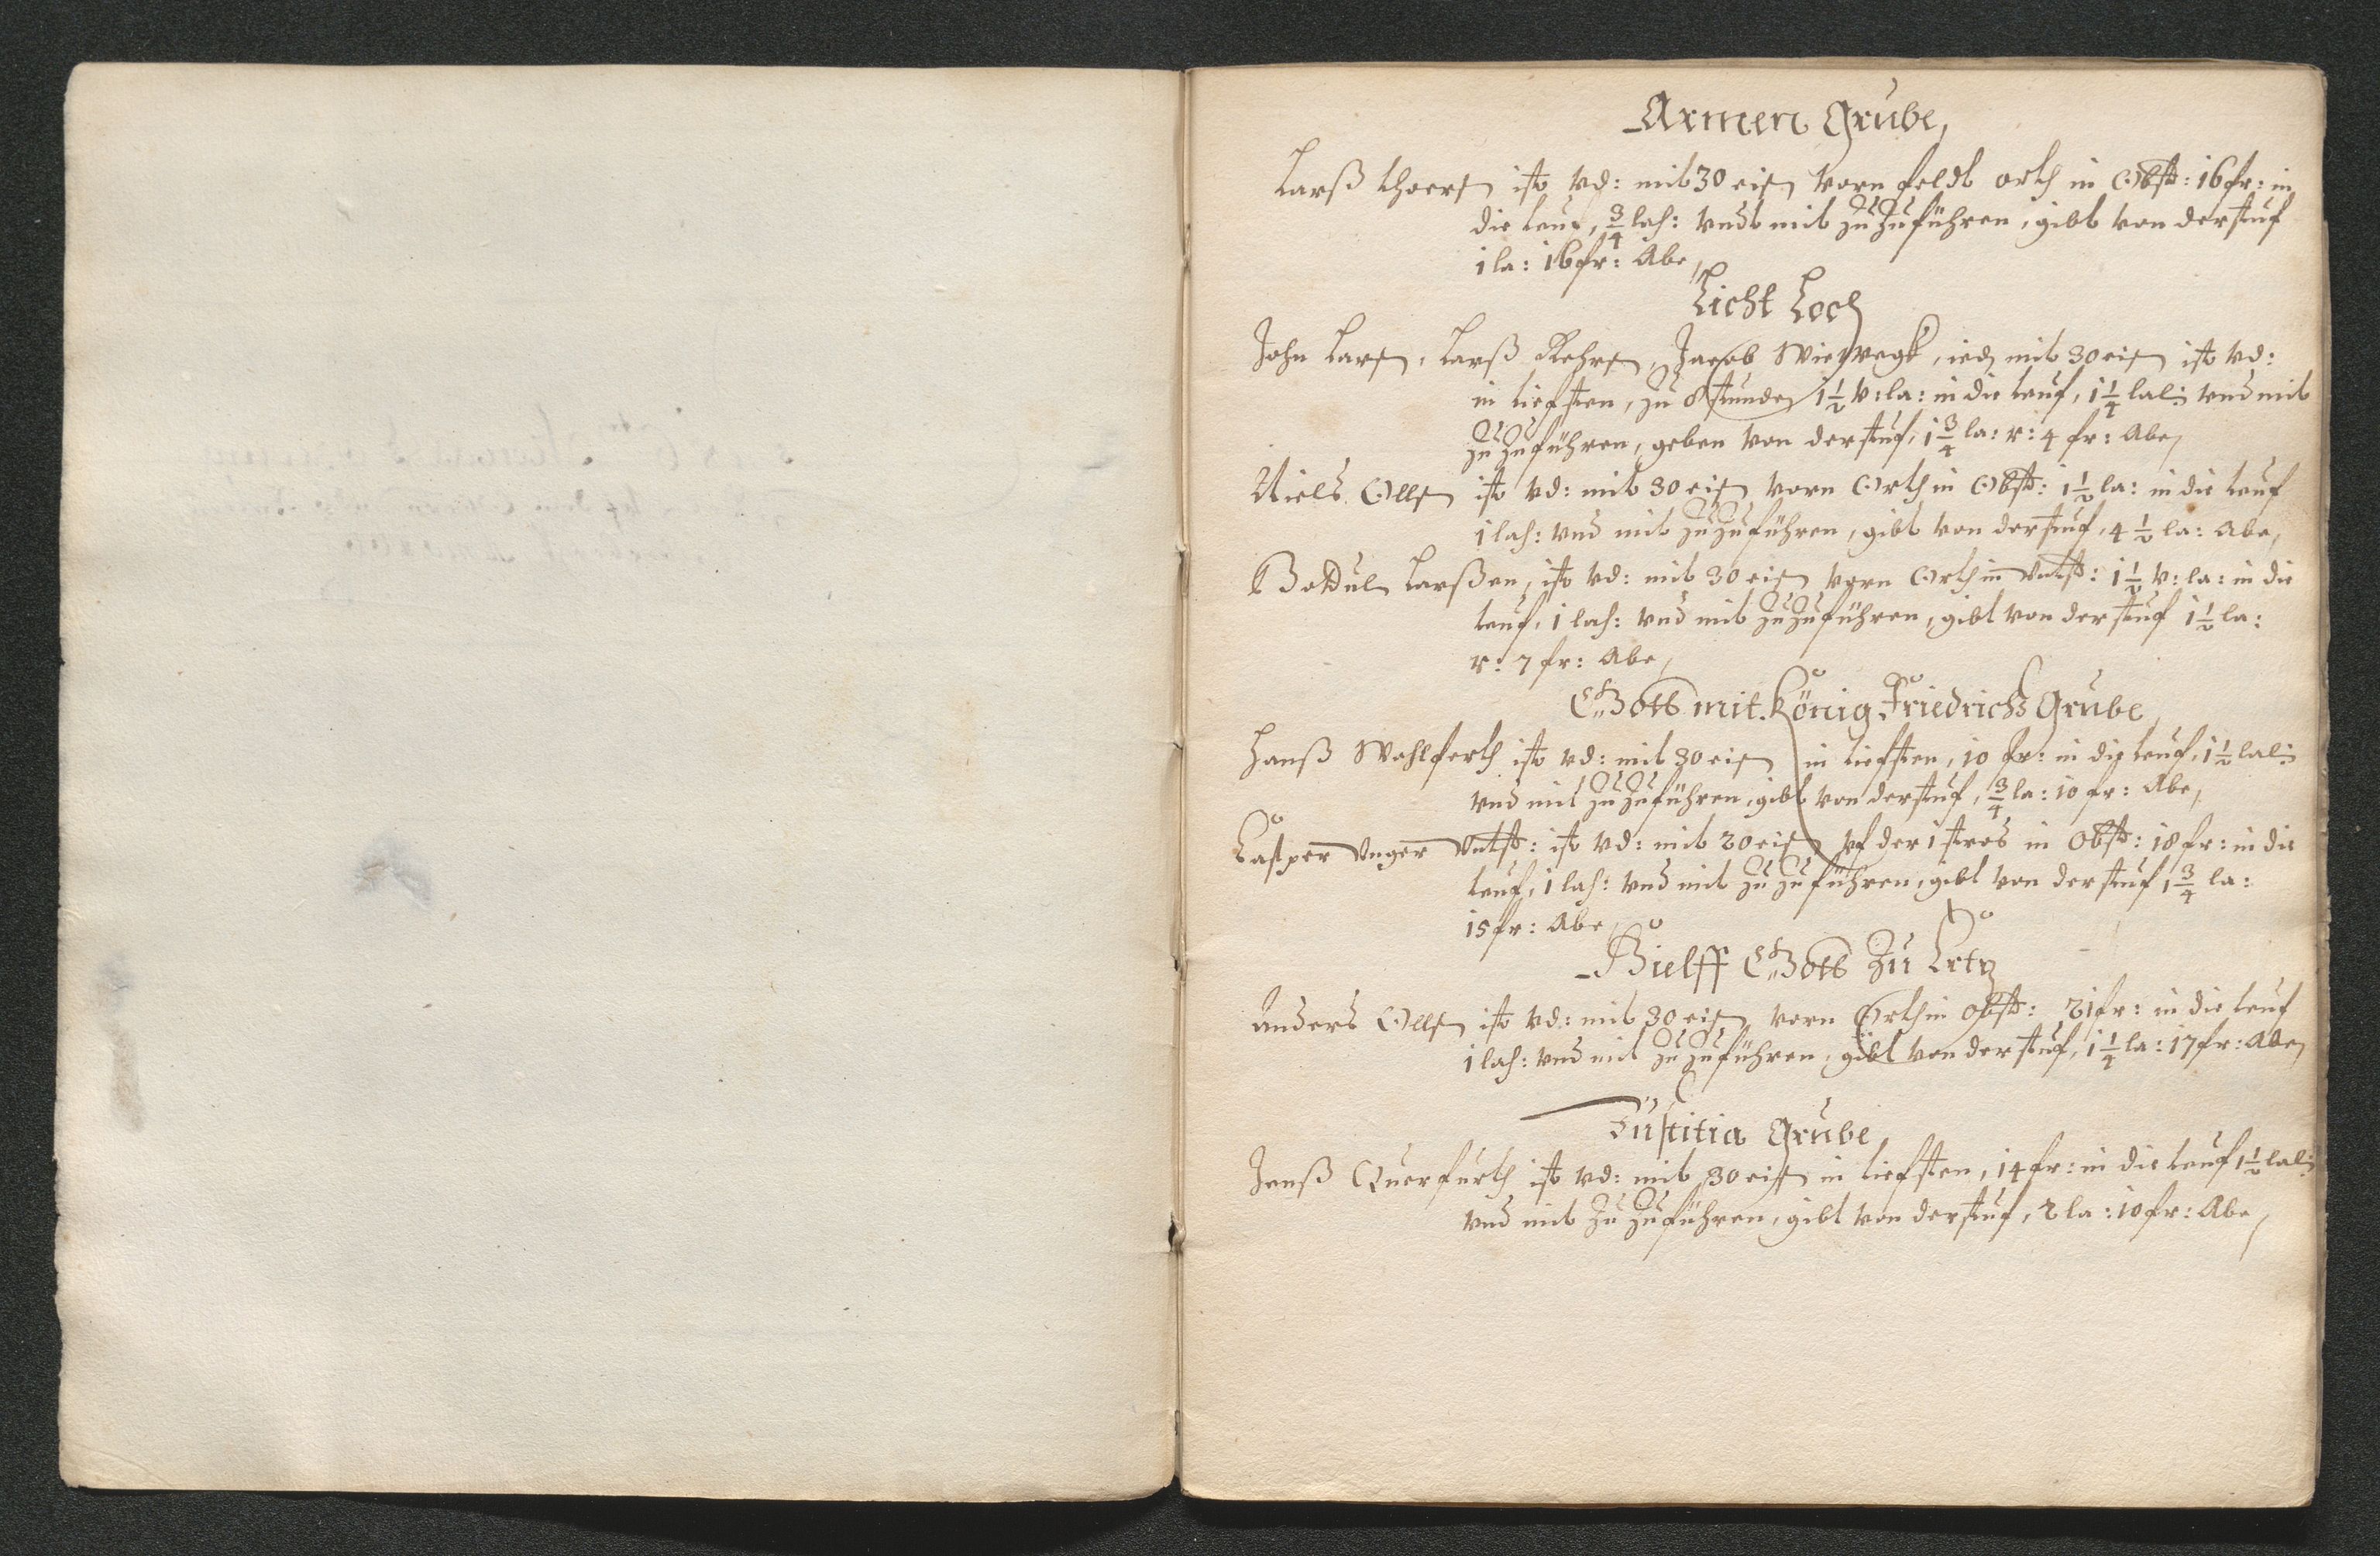 Armen Grube,
Larß thoers, ist vd: mit 30 eis, vorn feldt orth in Obst: 16 fr: in
die teuf, 3/4 lach: vndt mit zu Zuführen, gibt von der stuf
1 la: 16 fr: Abe,
Licht Loch
John Lars, Larß Rehrs, Jacob Wiegvegk, ied, mit 30 eis, ist vd:
in tiefsten, zu 8 stunden 1 1/2 v: la: in die teuf, 1 1/4 lach: vnd mit
zu Zuführen, geben von der stuf, 1 3/4 la: v: 4 fr: Abe,
Niels Olls, ist vd: mit 30 eis, vorn Orth in Obst: 1 1/2 la: in die teuf
1 lach: vnd mit zu Zuführen, gibt von der stuf, 4 1/2 la: Abe,
Larßen, ist vd: mit 30 eis, vorn Orth in vntst: 1 1/2 v: la: in die
teuf, 1 lach: vnd mit zu Zuführen, gibt von der stuf 1 1/2 la:
v: 7 fr: Abe,
Gott mit König Friedrichs Grube,
Hanß Wohlferth ist vd: mit 30 eis, in tiefsten, 10 fr: in die teuf, 1 1/2 lach:
vnd mit zu Zuführen, gibt von der stuf, 3/4 la: 10 fr: Abe,
Casper Vnger vntst: ist vd: mit 20 eis, vf der 1 stros in Obst: 18 fr: in die
teuf, 1 lach: vnd mit zu Zuführen, gibt von der stuf, 3/4 la:
15 fr: Abe,
Hielff Gott Zu
Anders Olls, ist vd: mit 30 eis, vorn Orth in Obst: 21 fr: in die teuf
1 lach: vnd mit zu Zuführen, gibt von der stuf, 1 1/4 la: 17 fr: Abe,
Justitia Grube
Jenß Querfurth ist vd: mit 30 eis, in tiefsten, 14 fr: in die teuf 1 1/2 lach:
vnd mit zu Zuführen, gibt von der stuf, 2 la: 10 fr: Abe,